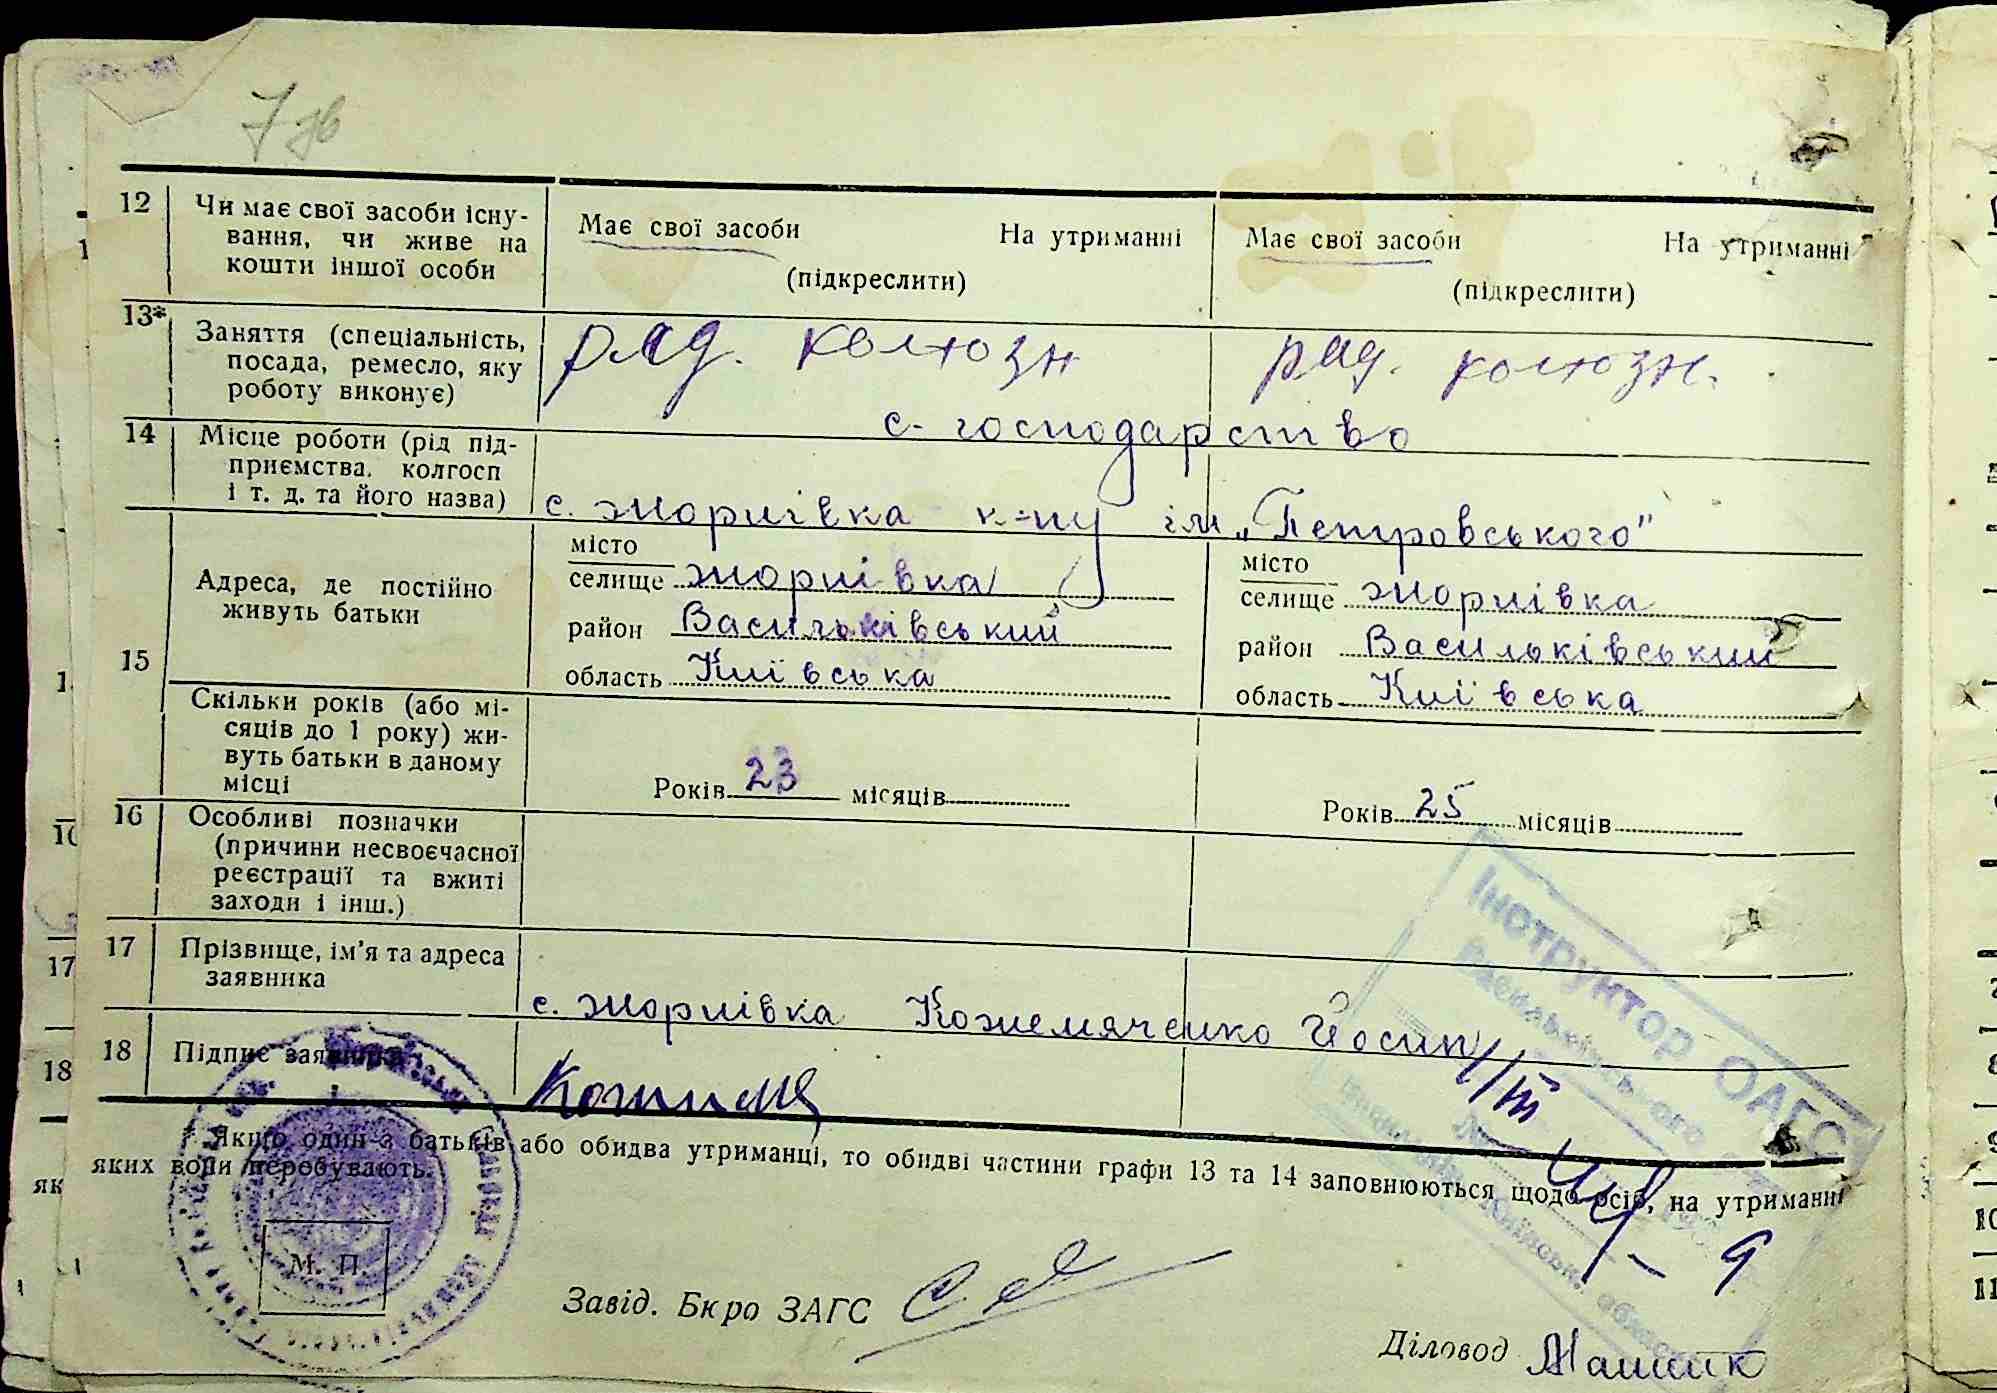 7 зв
12 Чи має свої засоби існу-
вання, чи живе на
кошти іншої особи
Має свої засоби На утриманні
(підкреслити)
Має свої засоби На утриманні
(підкреслити)
13* Заняття (спеціальність,
посада, ремесло, яку
роботу виконує)
ряд. колгозн
ряд. колгозн.
с-господарство
14 Місце роботи (рід під-
приємства, колгосп
і т. д. та його назва)
с. Жорнівка к-пу ім „Петровського"
15 Адреса, де постійно
живуть батьки
місто
селище Жорнівка
район Васильківський
область Київська
місто
селище Жорнівка
район Васильківський
область Київська
Скільки років (або мі-
сяців до 1 року) жи-
вуть батьки в даному
місці
Років 23 місяців
Років 25 місяців
16 Особливі позначки
(причини несвоєчасної
реєстрації та вжиті
заходи і інш.)
17 Прізвище, ім'я та адреса
заявника
с. Жорнівка Кожемяченко Йосип
18 Підпис заявника
* Якщо один з батьків або обидва утриманці, то обидві частини графи 13 та 14 заповнюються щодо осіб, на утриманні
яких вони перебувають.
Інструктор ОАГС
Васильківського
М. П.
Завід. Бюро ЗАГС
Діловод